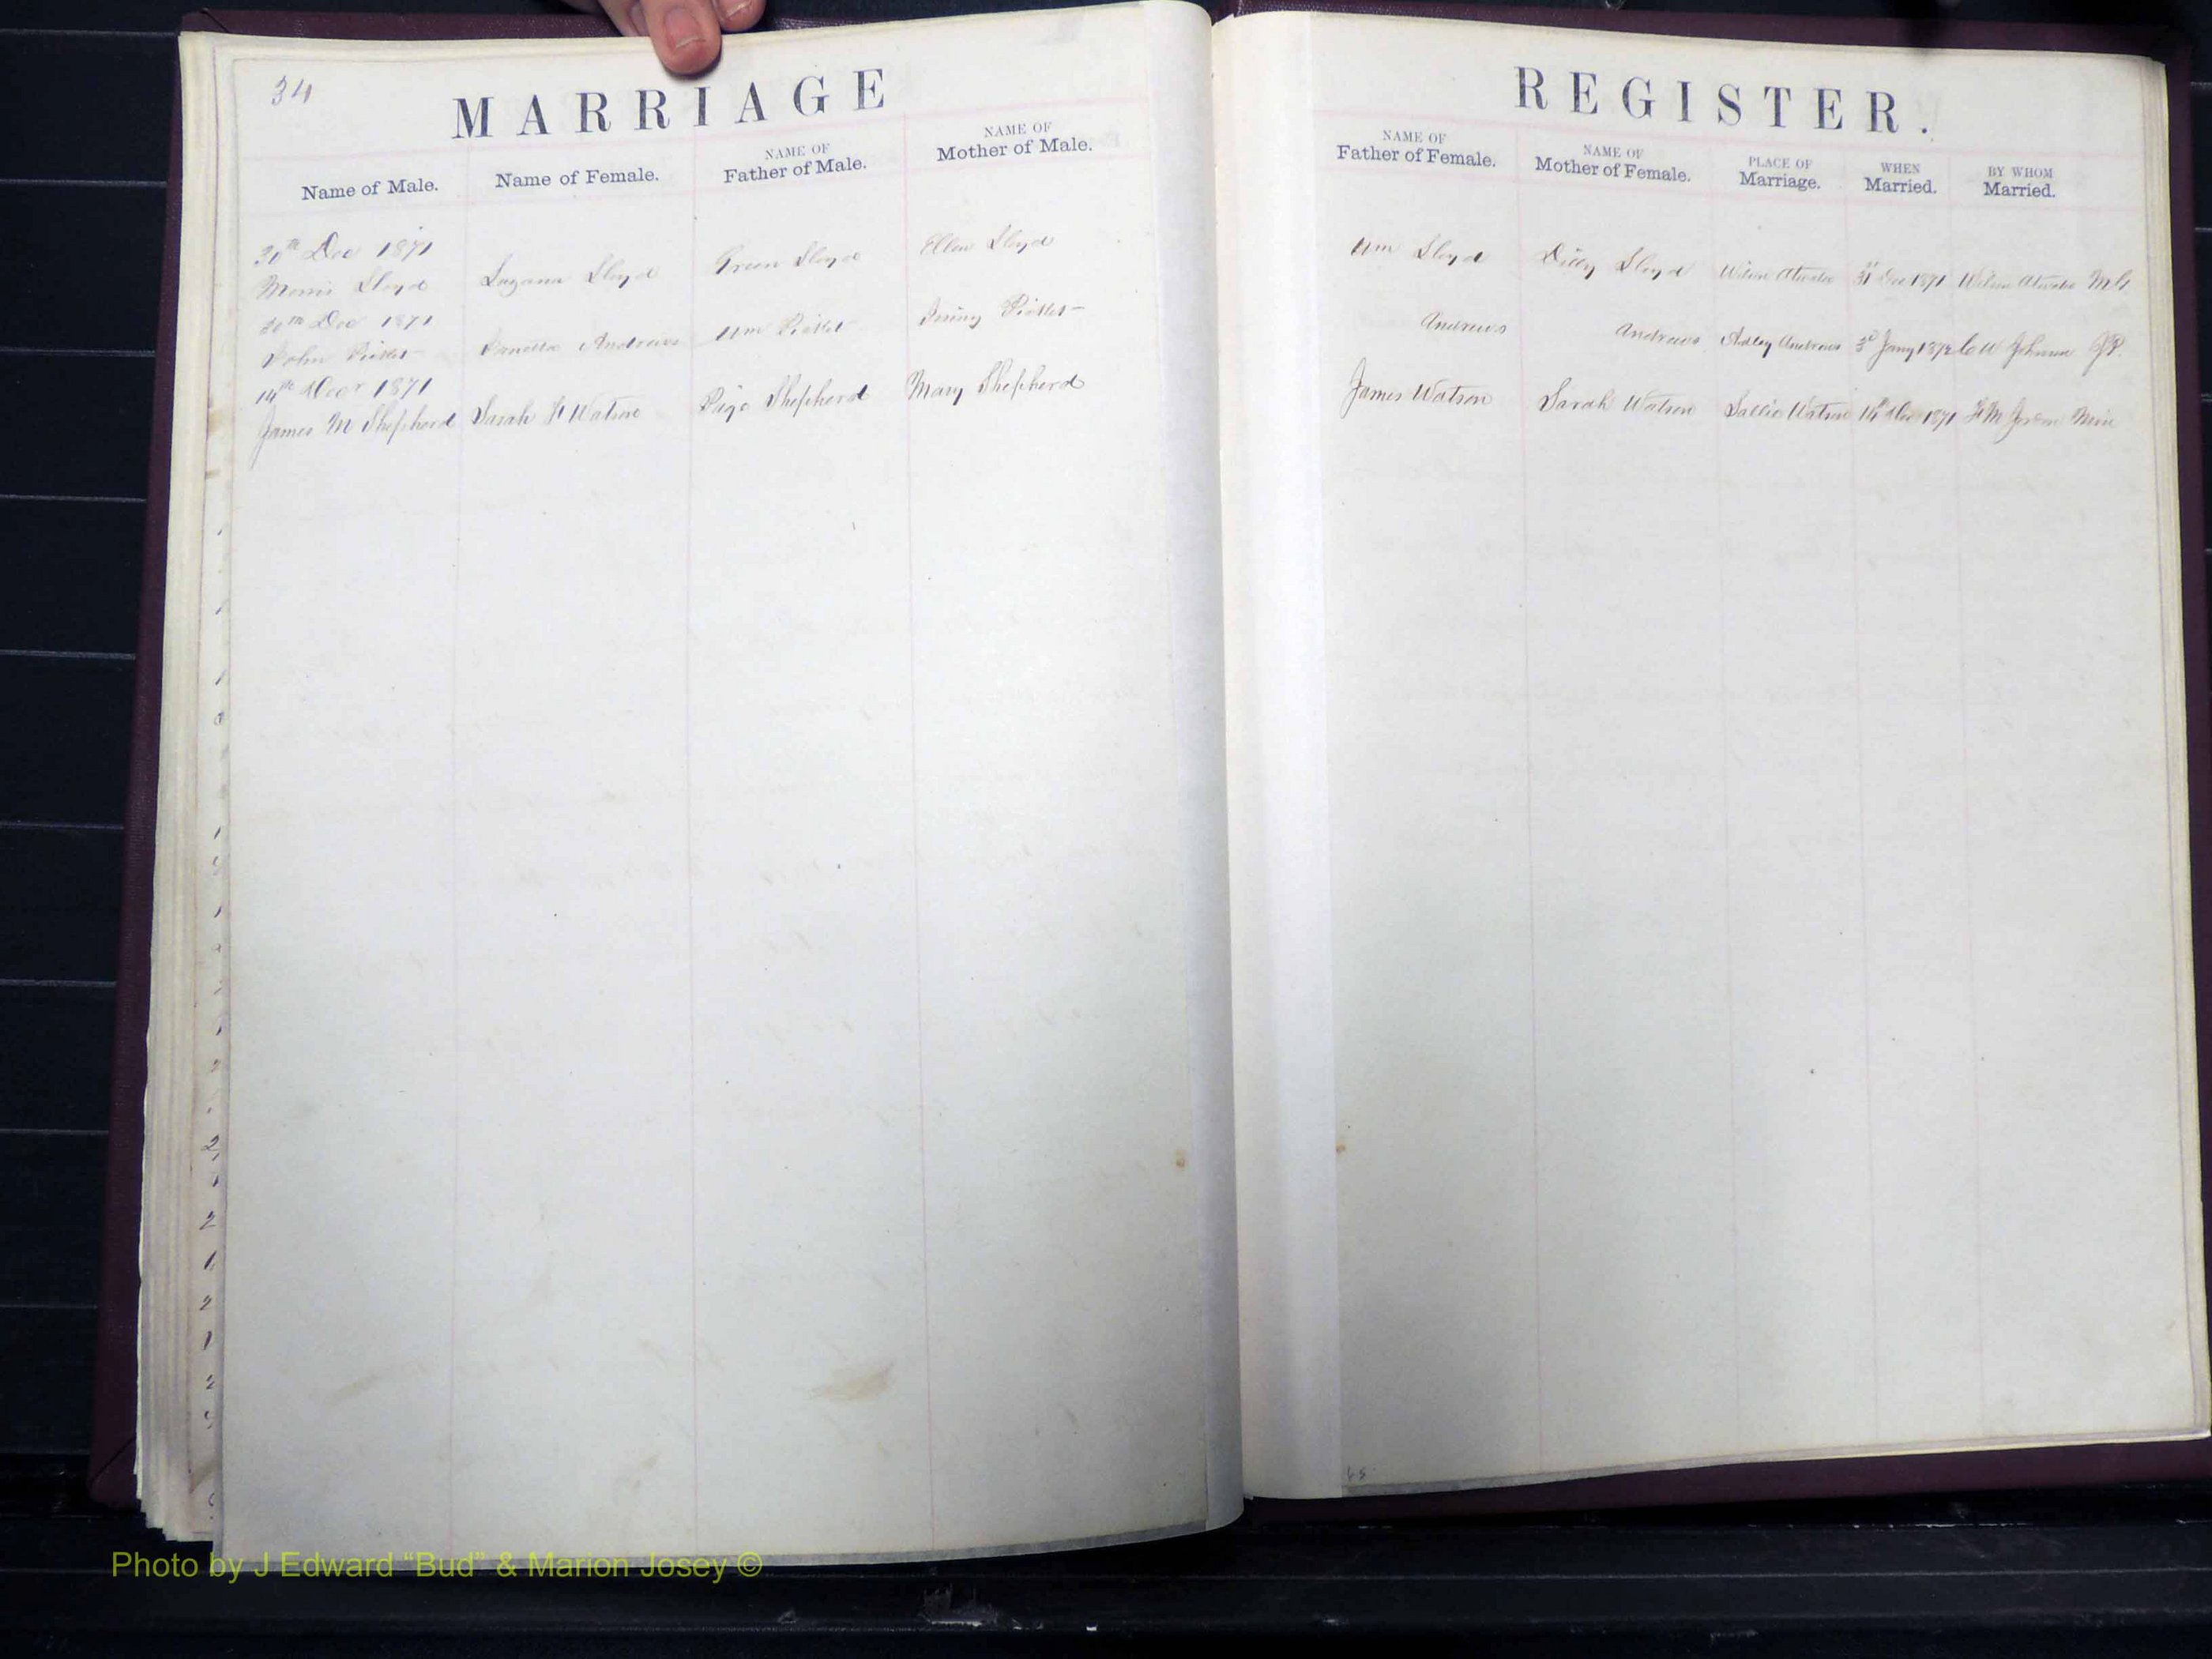 34
MARRIAGE
Name of Male. Name of Female. NAME OF Father of Male. NAME OF Mother of Male.
30th Dec 1871
Morris Lloyd Lloyd Green Lloyd Ellen Lloyd
30th Dec 1871
John Andrews Wm
14th Decr 1871
James M Shepherd Sarah H Watson Page Shepherd Mary Shepherd
REGISTER.
NAME OF Father of Female. NAME OF Mother of Female. PLACE OF Marriage. WHEN Married. BY WHOM Married.
Wm Lloyd Dilly Lloyd Wilson Atwater 31st Dec 1871 Wilson Atwater MG
Andrews Andrews Andrews 3d Jany 1872 C W Johnson JP.
James Watson Sarah Watson Sallie Watson 14th Dec 1871 H M Mini
Photo by J Edward "Bud" & Marion Josey ©